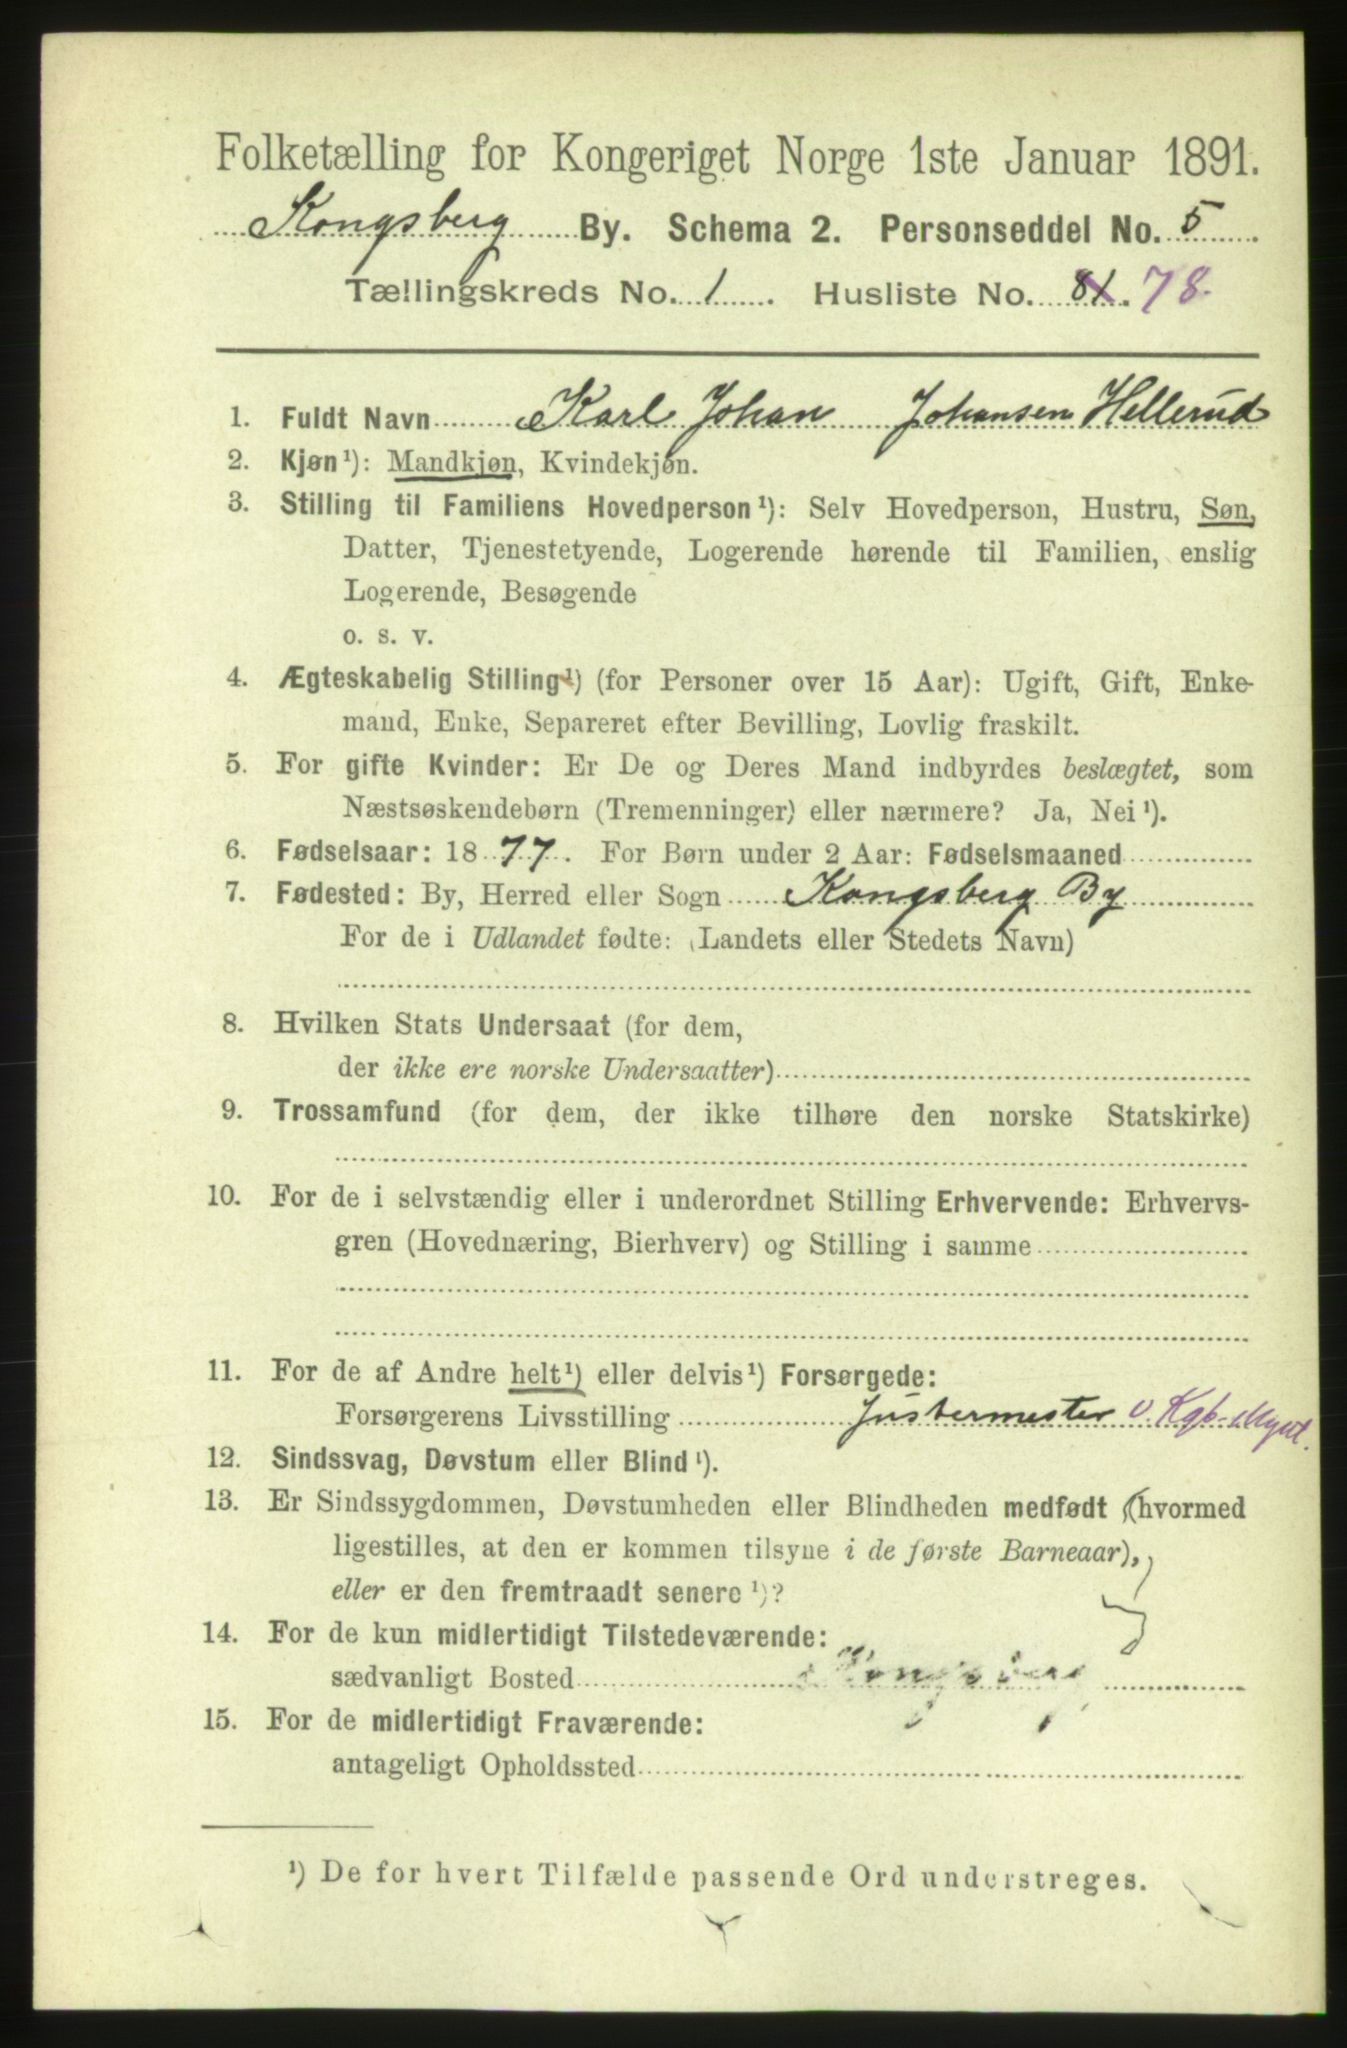 Folketælling for Kongeriget Norge 1ste Januar 1891.
Kongsberg By. Schema 2. Personseddel No. 5
Tællingskreds No. 1. Husliste No. 81. 78.
1. Fuldt Navn Karl Johan Johansen Hellerud
2. Kjøn¹): Mandkjøn, Kvindekjøn.
3. Stilling til Familiens Hovedperson¹): Selv Hovedperson, Hustru, Søn,
Datter, Tjenestetyende, Logerende hørende til Familien, enslig
Logerende, Besøgende
o. s. v.
4. Ægteskabelig Stilling¹) (for Personer over 15 Aar): Ugift, Gift, Enke-
mand, Enke, Separeret efter Bevilling, Lovlig fraskilt.
5. For gifte Kvinder: Er De og Deres Mand indbyrdes beslægtet, som
Næstsøskendebørn (Tremenninger) eller nærmere? Ja, Nei¹).
6. Fødselsaar: 1877. For Børn under 2 Aar: Fødselsmaaned
7. Fødested: By, Herred eller Sogn Kongsberg By
For de i Udlandet fødte: (Landets eller Stedets Navn)
8. Hvilken Stats Undersaat (for dem,
der ikke ere norske Undersaatter)
9. Trossamfund (for dem, der ikke tilhøre den norske Statskirke)
10. For de i selvstændig eller i underordnet Stilling Erhvervende: Erhvervs-
gren (Hovednæring, Bierhverv) og Stilling i samme
11. For de af Andre helt¹) eller delvis¹) Forsørgede:
Forsørgerens Livsstilling Justermester v. Kgb. Mynt.
12. Sindssvag, Døvstum eller Blind¹).
13. Er Sindssygdommen, Døvstumheden eller Blindheden medfødt (hvormed
ligestilles, at den er kommen tilsyne i de første Barneaar),
eller er den fremtraadt senere¹)?
14. For de kun midlertidigt Tilstedeværende:
sædvanligt Bosted Kongsberg
15. For de midlertidigt Fraværende:
antageligt Opholdssted
¹) De for hvert Tilfælde passende Ord understreges.